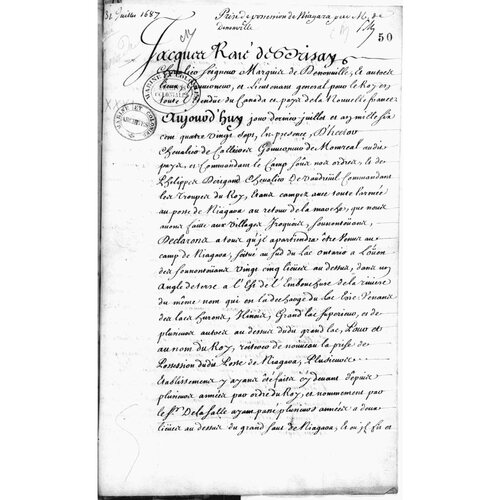 31 Juillet 1687
Prise de possession de Niagara par M. de
Denonville
50
Jacques René de Brisay
Chevalier Seigneur Marquis de Denonville, et autres
Lieux, Gouverneur, et Lieutenant general pour le Roy en
toute l'Etendue du Canada et pays de la Nouvelle france
Aujourd'huy jour dernier juillet et an mille six
cent quatre vingt sept, En presence, D'hector
Chevalier de Callieres Gouverneur de Montreal audit
pays, et Commandant le Camp sous nos ordres, et de
Philippes De rigaud Chevalier De Vaudreuil Commandant
les troupes du Roy, Etant campez avec toute l'armée
au poste de Niagara au retour de la marche, que nous
avons faite aux villages Iroquois, sonnontoüans,
Declarons a tous qu'il appartiendra être Venus au
camp de Niagara, situé au sud du Lac ontario a L'oüest
des sonnontoüans vingt cinq lieües au dessus, dans un
Angle de terre a l'Est de l'Embouchure de la riviere
du même nom qui est la decharge du lac Erie Venant
des lacs hurons, Ilinois, Grand lac superieur, et de
plusieurs autres au dessus dudit grand lac, Pour et
au nom du Roy, reiterer de nouveau la prise de
Possession dudit Poste de Niagara, Plusieurs
Etablissemens y ayant été faits cy devant depuis
plusieurs années par ordre du Roy, et nommement par
le Sr. De la Salle ayant passé plusieurs années a deux
lieües au dessus du grand saut de Niagara, ou il fit et